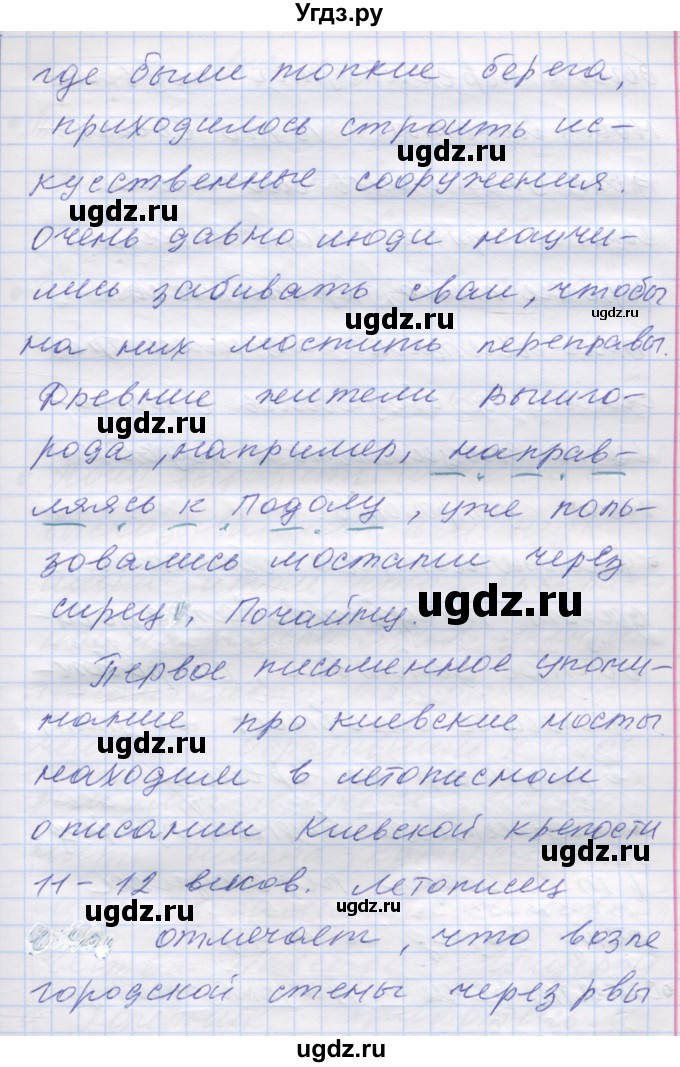 Угдз.ру
где были топкие берега,
приходилось строить ис-
ugdz.ru
кусственные сооружения.
ugdz.ru
очень давно люди научи-
лись забивать сваи, чтобы
ugdz.ru
ugdz.ru
на них мостить переправы.
Древние жители Вышго-
ugdz.ru
рода, например, направ-
ляясь к Подолу, уже поль-
зовались мостами через
ugdz.ru
сирец, Почайну.
Первое письменное упоми-
нание про киевские мосты
ugdz.ru
находим в летописном
описании Киевской крепости
ugdz.ru
11-12 веков. Летописец
ugdz.ru
отмечает, что возле
городской стены через рвы
ugdz.ru